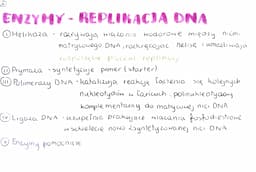 ENZYMY - REPLIKACJA DNA
① Helikaza - rozrywają wiązania wodorowe między nićmi
matrycowego DNA, rozkręcając helisę - umożliwiają
rozpoczęcie procesu replikacji
② Prymaza - syntetyzuje primer (starter)
③ Polimerazy DNA - katalizacja reakcji łączenia się kolejnych
nukleotydów w łańcuch polinukleotydowy
komplementarny do matrycowej nici DNA
④ Ligaza DNA - uzupełnia brakujące wiązania fosfodiestrowe
w szkielecie nowo zsyntetyzowanej nici DNA
⑤ Enzymy pomocnicze